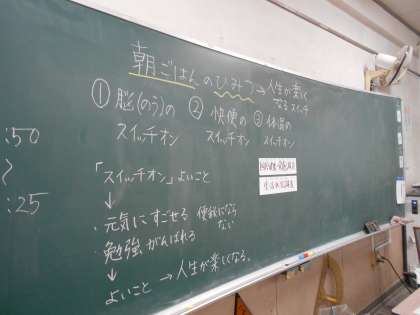 朝ごはんのひみつ→人生が楽しくなるスイッチ
①脳(のう)のスイッチオン
②快便のスイッチオン
③体温のスイッチオン
:50
〜
:25
「スイッチオン」よいこと
↓
・元気にすごせる 便秘にならない
・勉強がんばれる
↓
よいこと→人生が楽しくなる。